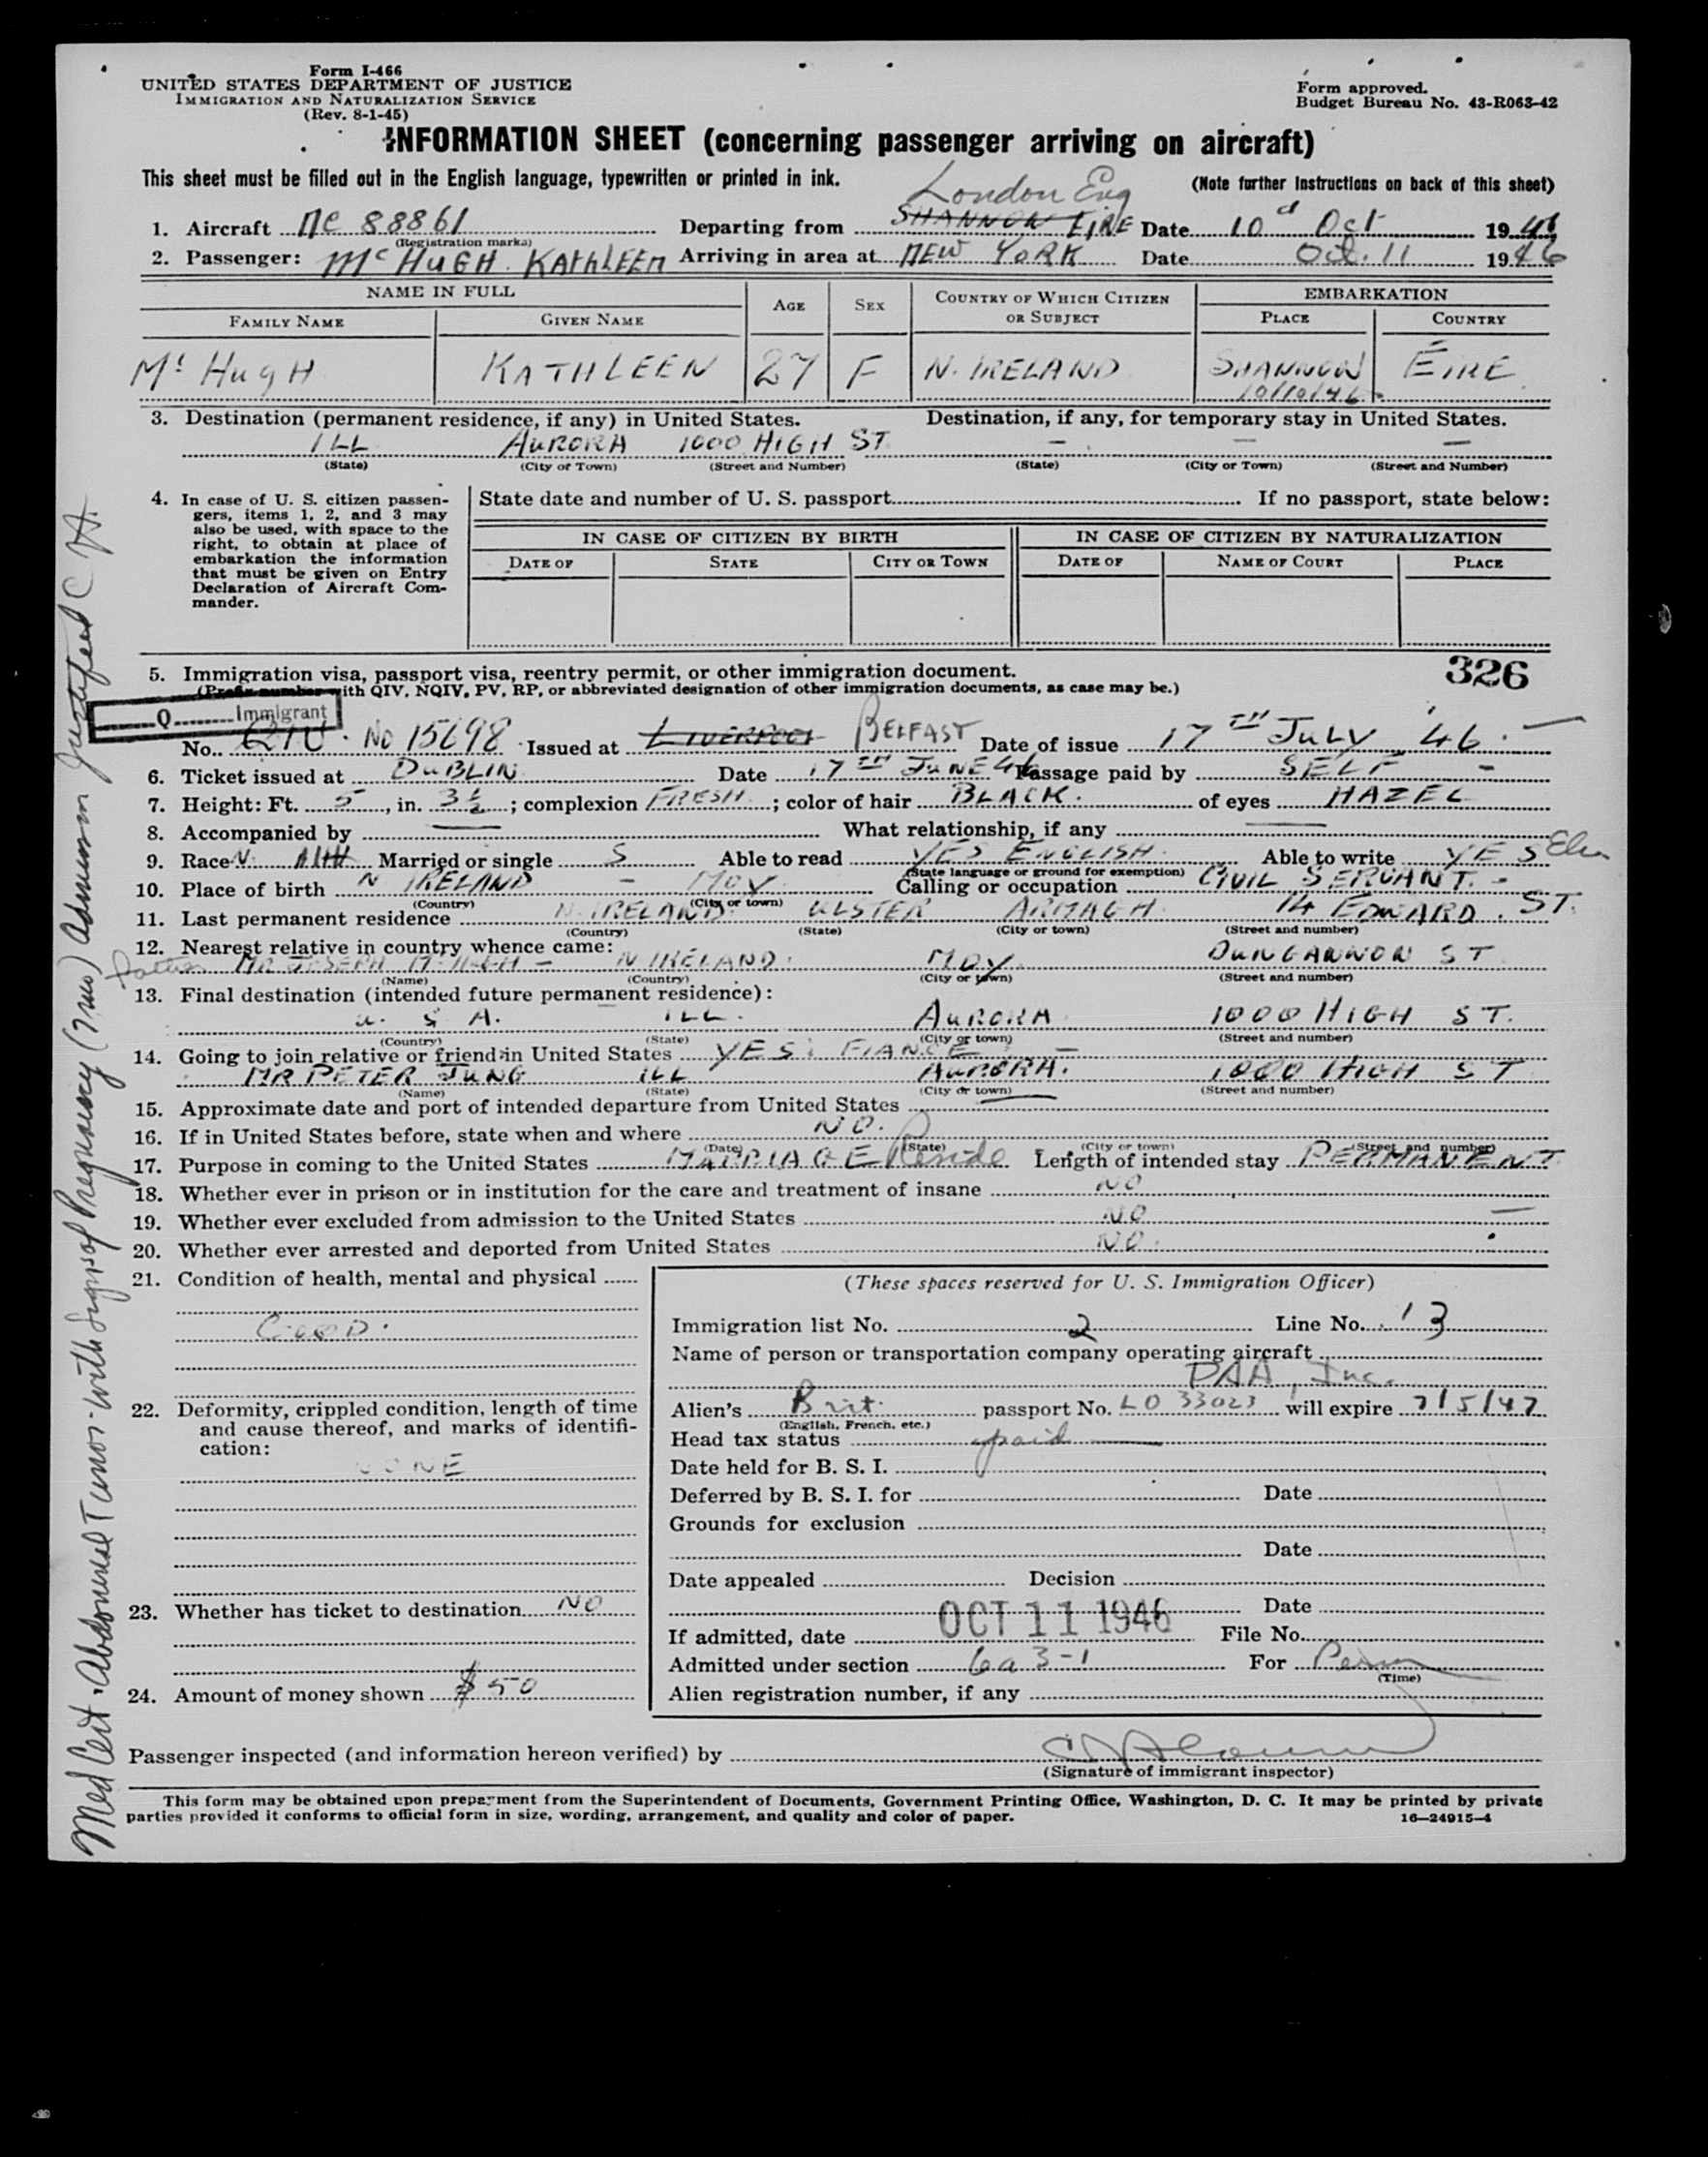 Form I-466
UNITED STATES DEPARTMENT OF JUSTICE
IMMIGRATION AND NATURALIZATION SERVICE
(Rev. 8-1-45)
Form approved.
Budget Bureau No. 43-R063-42
INFORMATION SHEET (concerning passenger arriving on aircraft)
This sheet must be filled out in the English language, typewritten or printed in ink.
(Note further instructions on back of this sheet)
London Eng
1. Aircraft NC 88861 Departing from SHANNON EIRE Date 10 Oct 1946
(Registration marks)
2. Passenger: McHUGH KATHLEEN Arriving in area at NEW YORK Date Oct. 11 1946
NAME IN FULL AGE SEX COUNTRY OF WHICH CITIZEN OR SUBJECT EMBARKATION
FAMILY NAME GIVEN NAME PLACE COUNTRY
McHugH KATHLEEN 27 F N. IRELAND SHANNON EIRE
10/10/46
3. Destination (permanent residence, if any) in United States. Destination, if any, for temporary stay in United States.
ILL AURORA 1000 HIGH ST. — — —
(State) (City or Town) (Street and Number) (State) (City or Town) (Street and Number)
4. In case of U. S. citizen passengers, items 1, 2, and 3 may also be used, with space to the right, to obtain at place of embarkation the information that must be given on Entry Declaration of Aircraft Commander.
State date and number of U. S. passport If no passport, state below:
IN CASE OF CITIZEN BY BIRTH IN CASE OF CITIZEN BY NATURALIZATION
DATE OF STATE CITY OR TOWN DATE OF NAME OF COURT PLACE
326
5. Immigration visa, passport visa, reentry permit, or other immigration document.
(Prefix number with QIV, NQIV, PV, RP, or abbreviated designation of other immigration documents, as case may be.)
Q Immigrant
No. QIV. No 15698 Issued at LIVERPOOL BELFAST Date of issue 17TH JULY 46.
6. Ticket issued at DUBLIN Date 17TH JUNE 46 Passage paid by SELF -
7. Height: Ft. 5, in. 3½; complexion FRESH; color of hair BLACK. of eyes HAZEL
8. Accompanied by — What relationship, if any —
9. Race Married or single S Able to read YES ENGLISH. Able to write YES
(State language or ground for exemption)
10. Place of birth N IRELAND - MOY Calling or occupation CIVIL SERVANT. -
(Country) (City or town)
11. Last permanent residence N. IRELAND. ULSTER ARMAGH. 14 EDWARD. ST.
(Country) (State) (City or town) (Street and number)
12. Nearest relative in country whence came:
father MR JOSEPH McHUGH - N IRELAND. MOY DUNGANNON ST
(Name) (Country) (City or town) (Street and number)
13. Final destination (intended future permanent residence):
U. S A. ILL. AURORA 1000 HIGH ST.
(Country) (State) (City or town) (Street and number)
14. Going to join relative or friend in United States YES: FIANCE —
MR PETER JUNG ILL AURORA. 1000 HIGH ST
(Name) (State) (City or town) (Street and number)
15. Approximate date and port of intended departure from United States —
16. If in United States before, state when and where NO.
(Date) (State) (City or town) (Street and number)
17. Purpose in coming to the United States MARRIAGE Reside Length of intended stay PERMANENT
18. Whether ever in prison or in institution for the care and treatment of insane NO
19. Whether ever excluded from admission to the United States NO
20. Whether ever arrested and deported from United States NO.
21. Condition of health, mental and physical
GOOD.
22. Deformity, crippled condition, length of time and cause thereof, and marks of identification:
NONE
23. Whether has ticket to destination NO
24. Amount of money shown $50
(These spaces reserved for U. S. Immigration Officer)
Immigration list No. 2 Line No. 13
Name of person or transportation company operating aircraft
PAA, Inc.
Alien's Brit. passport No. LO 33023 will expire 7/5/47
(English, French, etc.)
Head tax status paid
Date held for B. S. I.
Deferred by B. S. I. for Date
Grounds for exclusion
Date
Date appealed Decision
Date
If admitted, date OCT 11 1946 File No.
Admitted under section 6a 3-1 For Perm
(Time)
Alien registration number, if any
Passenger inspected (and information hereon verified) by
(Signature of immigrant inspector)
This form may be obtained upon prepayment from the Superintendent of Documents, Government Printing Office, Washington, D. C. It may be printed by private
parties provided it conforms to official form in size, wording, arrangement, and quality and color of paper. 16—24915-4
Med Cert. Abdominal Tumor with signs of Pregnancy (7 mos) Admission Justified